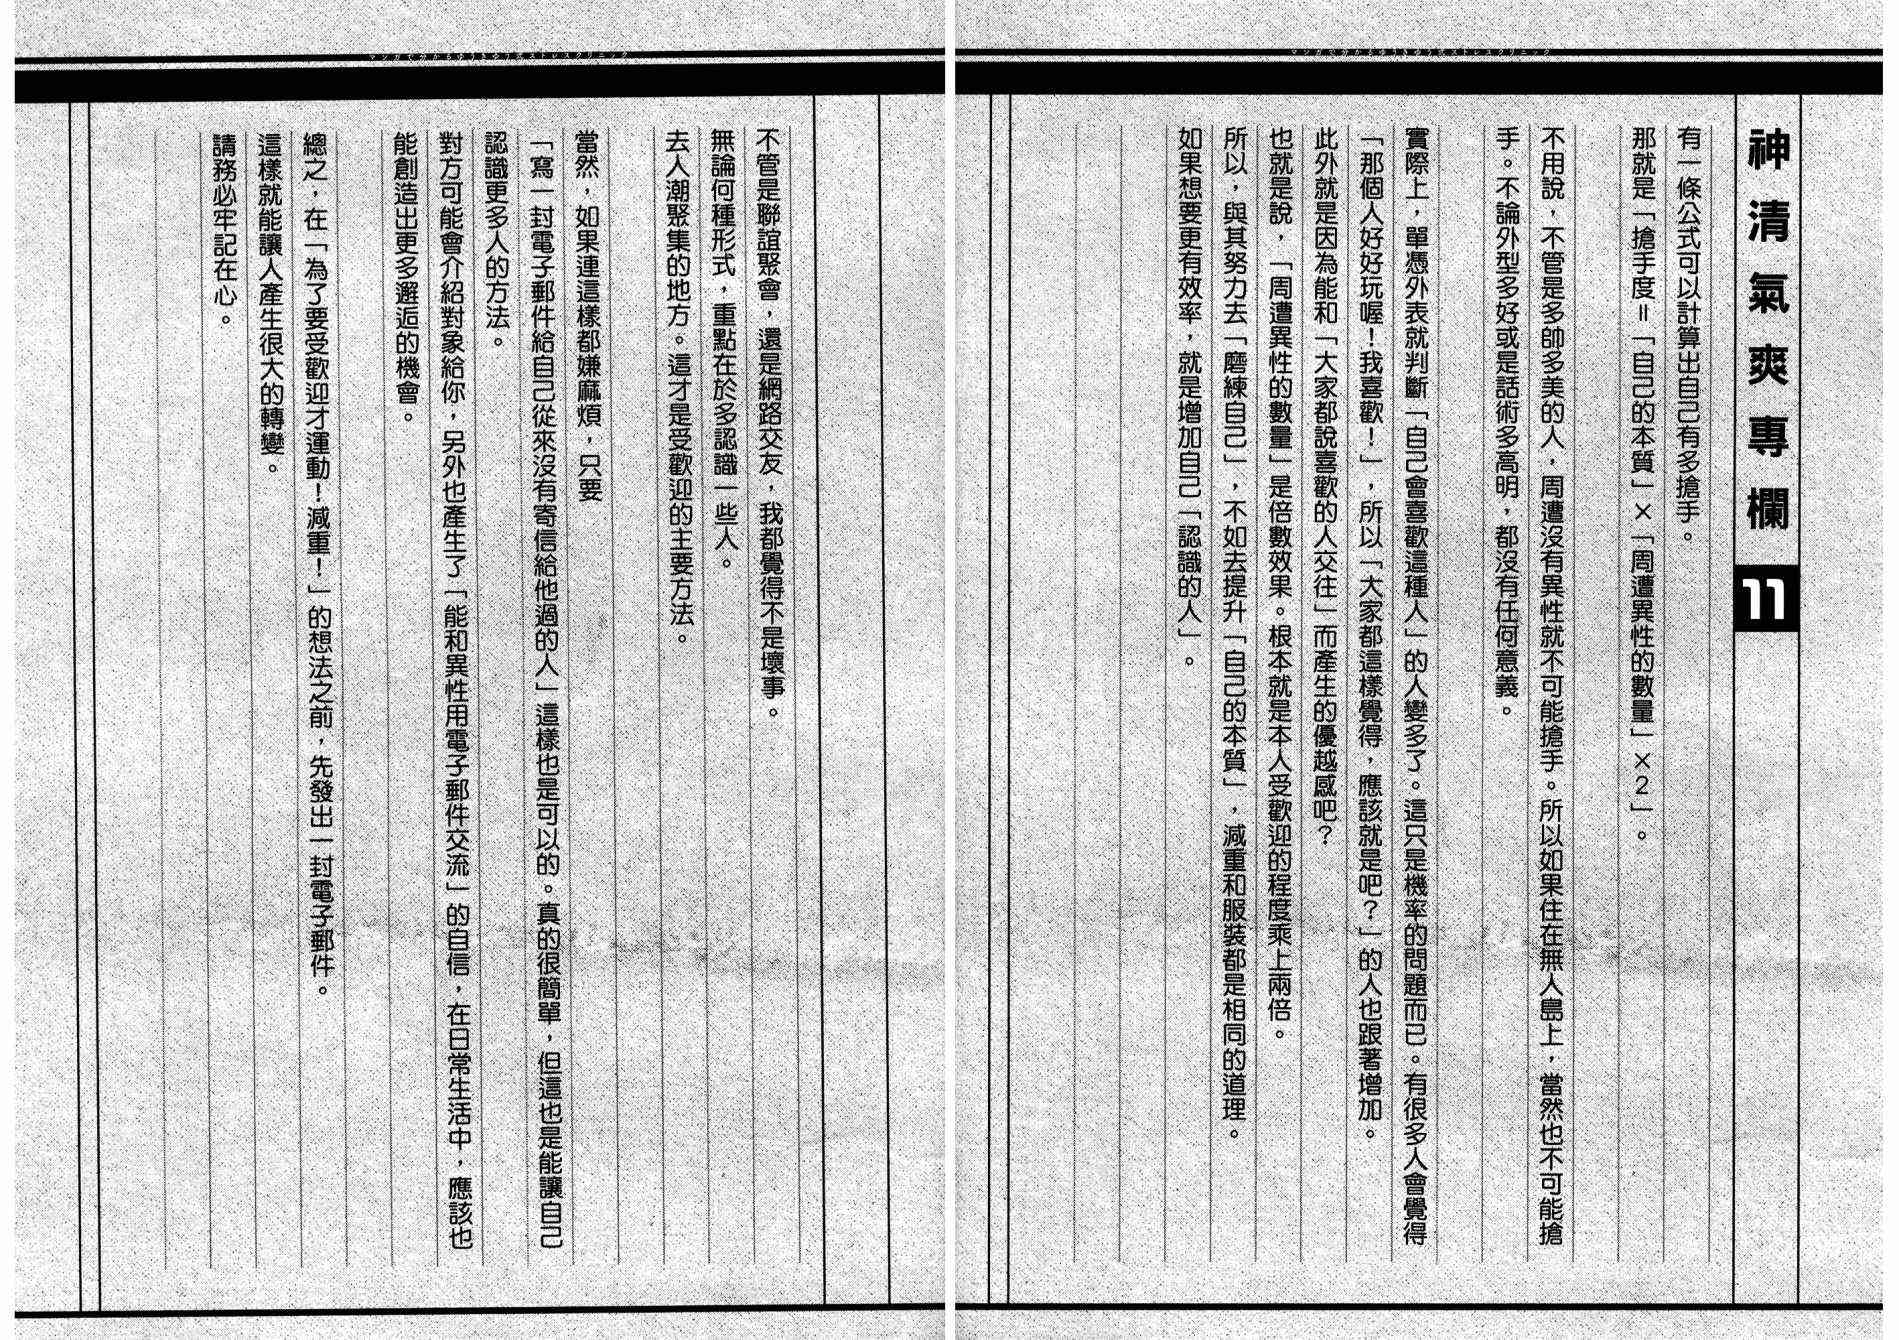 マンガで分かるゆうきゆうのストレスクリニック
神清氣爽專欄 11
有一條公式可以計算出自己有多搶手。
那就是「搶手度=「自己的本質」×「周遭異性的數量」×2」。
不用說,不管是多帥多美的人,周遭沒有異性就不可能搶手。所以如果住在無人島上,當然也不可能搶
手。不論外型多好或是話術多高明,都沒有任何意義。
實際上,單憑外表就判斷「自己會喜歡這種人」的人變多了。這只是機率的問題而已。有很多人會覺得
「那個人好好玩喔!我喜歡!」,所以「大家都這樣覺得,應該就是吧?」的人也跟著增加。
此外就是因為能和「大家都說喜歡的人交往」而產生的優越感吧?
也就是說,「周遭異性的數量」是倍數效果。根本就是本人受歡迎的程度乘上兩倍。
所以,與其努力去「磨練自己」,不如去提升「自己的本質」,減重和服裝都是相同的道理。
如果想要更有效率,就是增加自己「認識的人」。
マンガで分かるゆうきゆうのストレスクリニック
不管是聯誼聚會,還是網路交友,我都覺得不是壞事。
無論何種形式,重點在於多認識一些人。
去人潮聚集的地方。這才是受歡迎的主要方法。
當然,如果連這樣都嫌麻煩,只要
「寫一封電子郵件給自己從來沒有寄信給他過的人」這樣也是可以的。真的很簡單,但這也是能讓自己
認識更多人的方法。
對方可能會介紹對象給你,另外也產生了「能和異性用電子郵件交流」的自信,在日常生活中,應該也
能創造出更多邂逅的機會。
總之,在「為了要受歡迎才運動!減重!」的想法之前,先發出一封電子郵件。
這樣就能讓人產生很大的轉變。
請務必牢記在心。